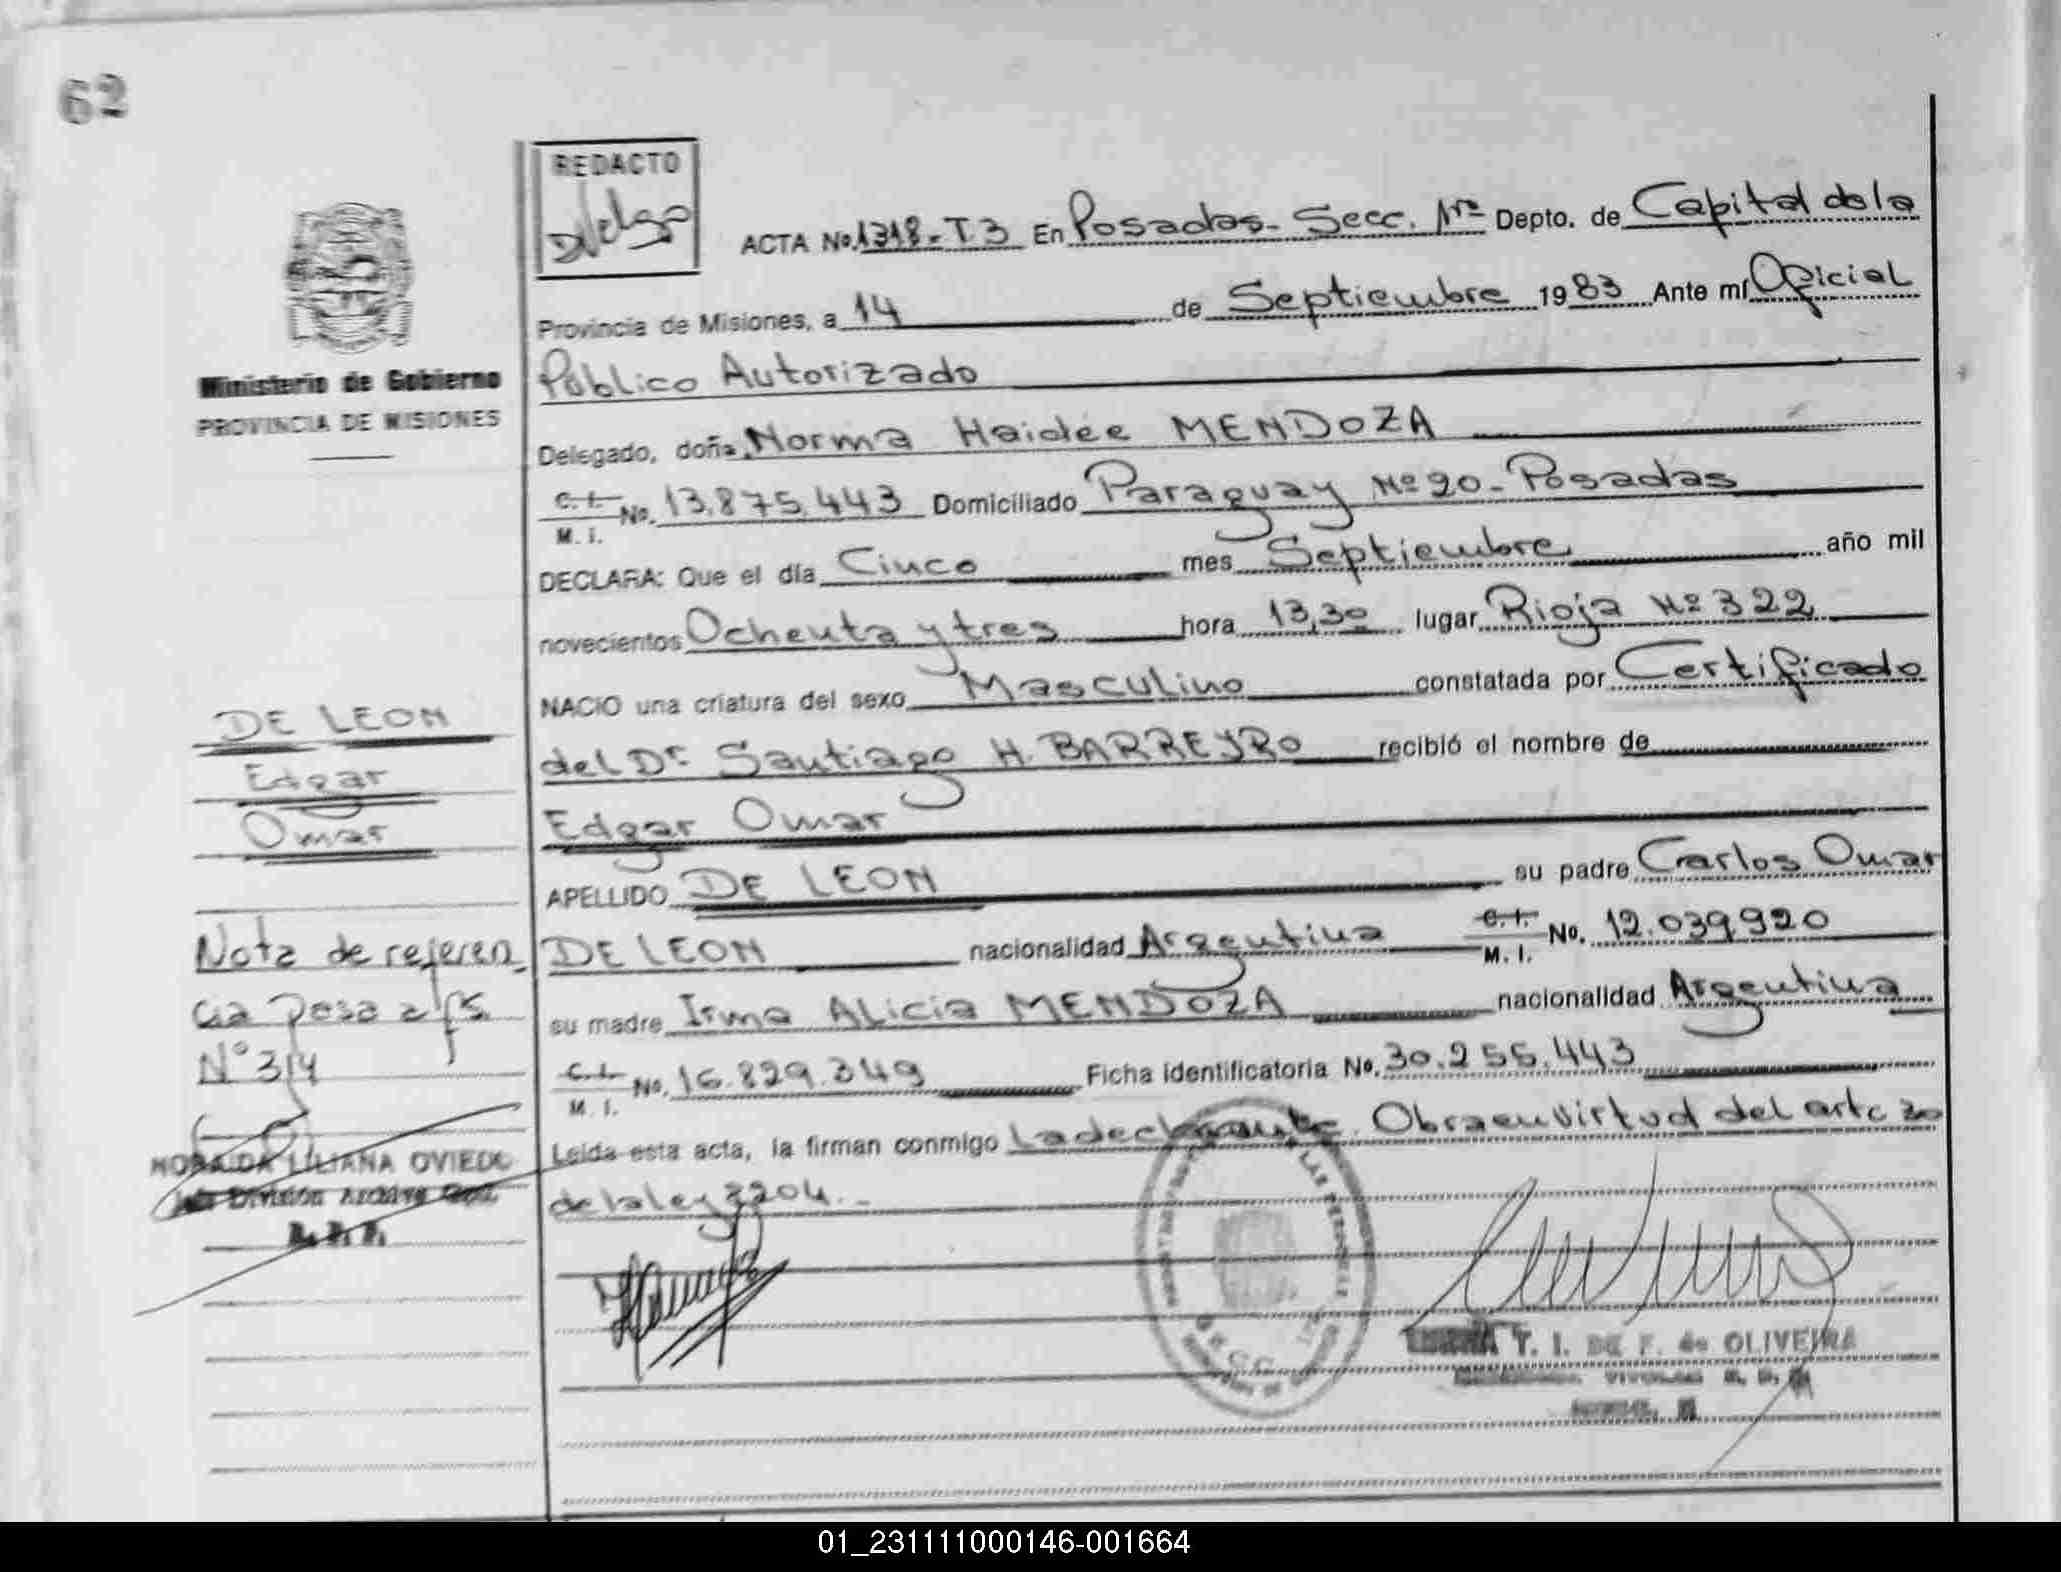 62
REDACTO
ACTA No. 1318-T3 En Posadas- Secc. 1ra Depto. de Capital de la
Provincia de Misiones, a 14 de Septiembre 1983 Ante mí Oficial
Público Autorizado
Ministerio de Gobierno
PROVINCIA DE MISIONES
Delegado, doña Norma Haidée MENDOZA
C.I. M.I. No. 13.875.443 Domiciliado Paraguay Nº 20- Posadas
DECLARA: Que el día Cinco mes Septiembre año mil
novecientos Ochenta y tres hora 13,30 lugar Rioja Nº 322
NACIO una criatura del sexo Masculino constatada por Certificado
del Dr. Santiago H. BARREYRO recibió el nombre de
Edgar Omar
APELLIDO DE LEON su padre Carlos Omar
DE LEON nacionalidad Argentina C.I. M.I. No. 12.039.920
su madre Irma ALicia MENDOZA nacionalidad Argentina
C.I. M.I. No. 16.829.349 Ficha identificatoria No. 30.255.443
Leída esta acta, la firman conmigo La declarante. Obra en virtud del artc 30
de la ley 3204.-
DE LEON
Edgar
Omar
Nota de referen
cia pasa a fs.
N° 314
LILIANA OVIEDO
Jefe División Archivo Gral.
T. I. DE F. de OLIVEIRA
01_231111000146-001664